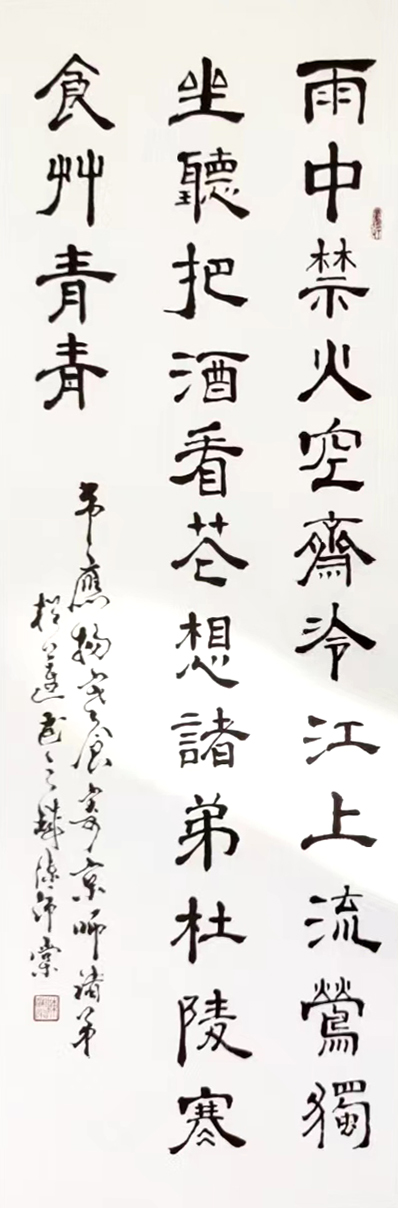 雨中禁火空齋冷江上流鶯獨
坐聽把酒看花想諸弟杜陵寒
食艸青青
韋應物寒食寄京師諸弟